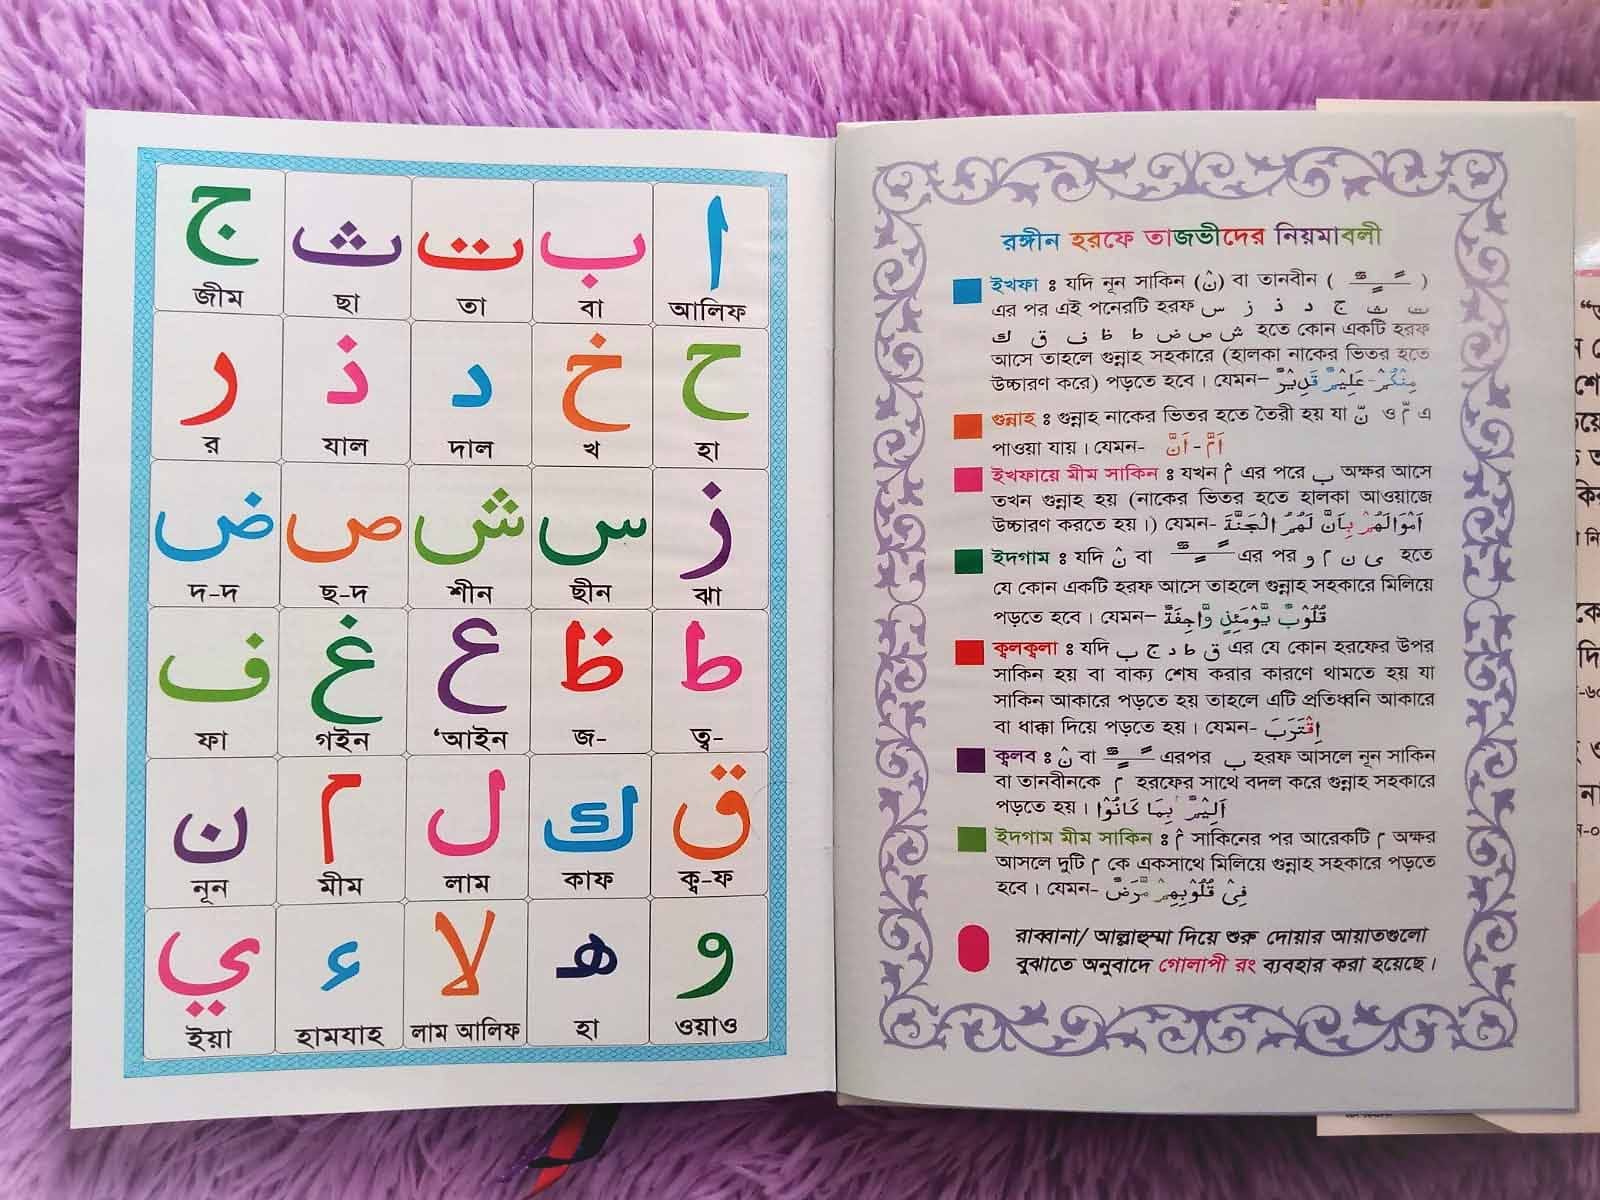 ا ب ت ث ج
আলিফ বা তা ছা জীম
ح خ د ذ ر
হা খ দাল যাল র
ز س ش ص ض
ঝা ছীন শীন ছ-দ দ-দ
ط ظ ع غ ف
ত্ব- জ- ‘আইন গইন ফা
ق ك ل م ن
ক্ব-ফ কাফ লাম মীম নূন
و ه لا ء ي
ওয়াও হা লাম আলিফ হামযাহ ইয়া
রঙ্গীন হরফে তাজভীদের নিয়মাবলী
ইখফা : যদি নূন সাকিন (نْ) বা তানবীন ( ـًـٍـٌ )
এর পর এই পনেরটি হরফ ت ث ج د ذ ز س
ش ص ض ط ظ ف ق ك হতে কোন একটি হরফ
আসে তাহলে গুন্নাহ সহকারে (হালকা নাকের ভিতর হতে
উচ্চারণ করে) পড়তে হবে। যেমন- مِنْكُمْ - عَلِيْمٌ قَدِيْرٌ
গুন্নাহ : গুন্নাহ নাকের ভিতর হতে তৈরী হয় যা نّ ও مّ এ
পাওয়া যায়। যেমন- اَمَّ - اَنَّ
ইখফায়ে মীম সাকিন : যখন مْ এর পরে ب অক্ষর আসে
তখন গুন্নাহ হয় (নাকের ভিতর হতে হালকা আওয়াজে
উচ্চারণ করতে হয়।) যেমন- اَمْوَالَهُمْ بِاَنَّ لَهُمُ الْجَنَّةَ
ইদগাম : যদি نْ বা ـًـٍـٌ এর পর ى ن م و হতে
যে কোন একটি হরফ আসে তাহলে গুন্নাহ সহকারে মিলিয়ে
পড়তে হবে। যেমন- قُلُوْبٌ يَّوْمَئِذٍ وَّاجِفَةٌ
ক্বলক্বলা : যদি ق ط د ج ب এর যে কোন হরফের উপর
সাকিন হয় বা বাক্য শেষ করার কারণে থামতে হয় যা
সাকিন আকারে পড়তে হয় তাহলে এটি প্রতিধ্বনি আকারে
বা ধাক্কা দিয়ে পড়তে হয়। যেমন- اِقْتَرَبَ
ক্বলব : نْ বা ـًـٍـٌ এরপর ب হরফ আসলে নূন সাকিন
বা তানবীনকে م হরফের সাথে বদল করে গুন্নাহ সহকারে
পড়তে হয়। اَلِيْمٌۢ بِمَا كَانُوْا
ইদগাম মীম সাকিন : مْ সাকিনের পর আরেকটি م অক্ষর
আসলে দুটি م কে একসাথে মিলিয়ে গুন্নাহ সহকারে পড়তে
হবে। যেমন- فِىْ قُلُوْبِهِمْ مَّرَضٌ
রাব্বানা/ আল্লাহুম্মা দিয়ে শুরু দোয়ার আয়াতগুলো
বুঝাতে অনুবাদে গোলাপী রং ব্যবহার করা হয়েছে।